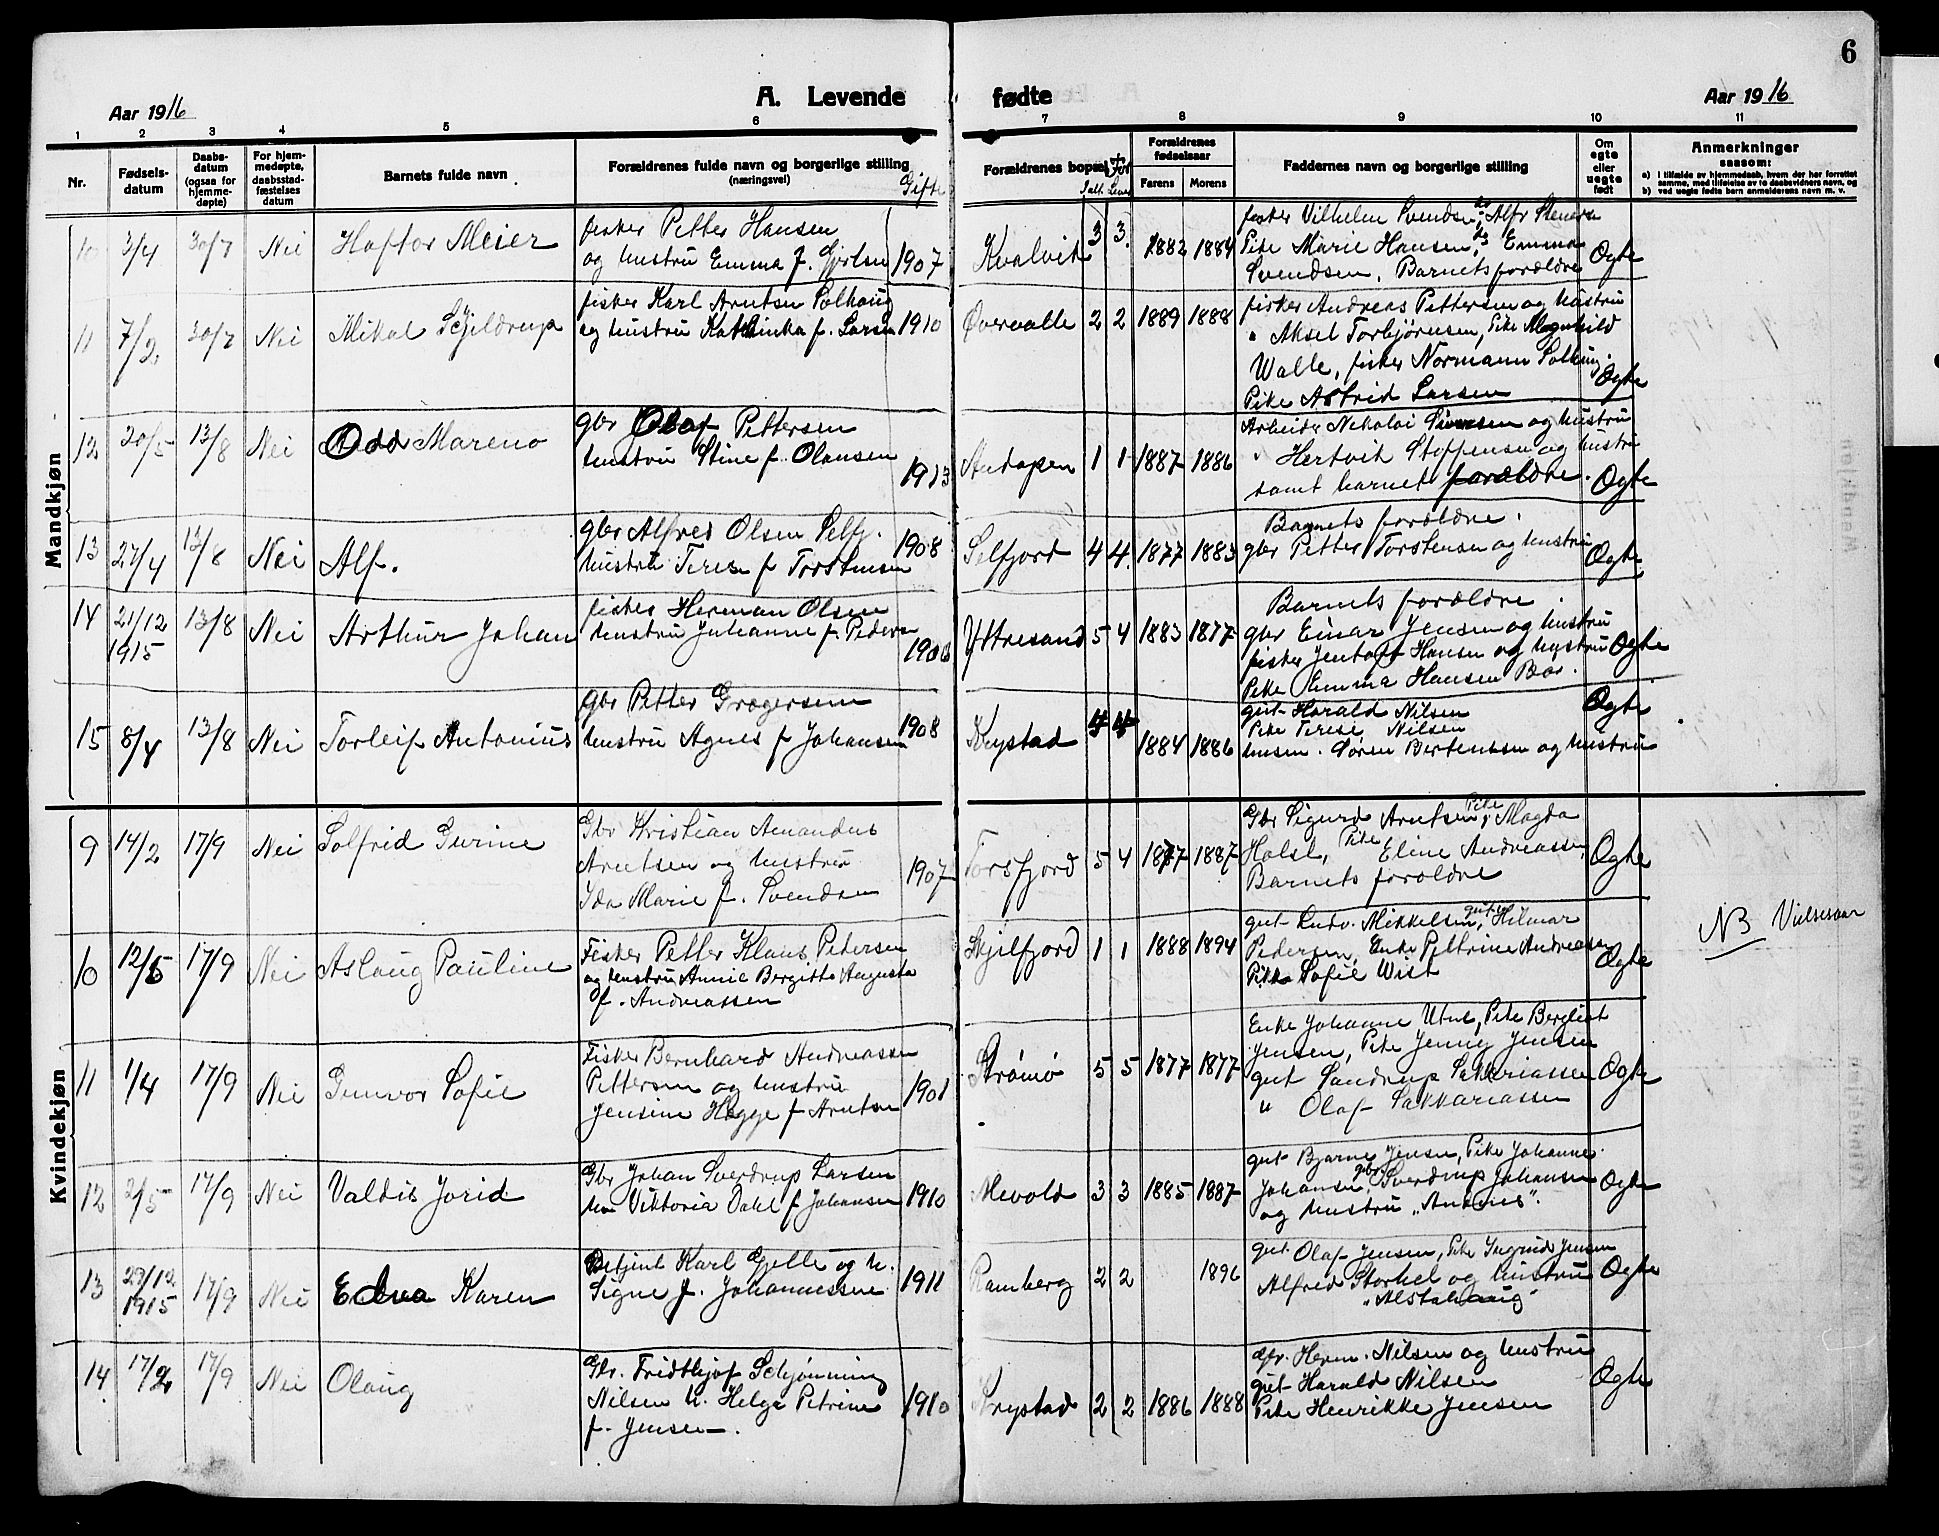 6
Aar 1916
A. Levende fødte
Aar 1916
1 2 3 4 5 6 7 8 9 10 11
Nr.
Fødsels-
datum
Daabs-
datum
(ogsaa for
hjemme-
døpte)
For hjem-
medøpte,
daabsstad-
fæstelses
datum
Barnets fulde navn
Forældrenes fulde navn og borgerlige stilling
(næringsvei)
Gifte
Forældrenes bopæl
Forældrenes
fødselsaar
Farens Morens
Faddernes navn og borgerlige stilling
Om
egte
eller
uegte
født
Anmerkninger
saasom:
a) I tilfælde av hjemmedaab, hvem der har forrettet
samme, med tilføielse av to daabsvidners navn, og
b) ved uegte fødte børn anmelderens navn m. v.
Mandkjøn
10 3/4 30/7 Nei Haftor Meier
fisker Petter Hansen
og hustru Emma f.
1907
Kvalvik 3 3. 1882 1884
fisker Vilhelm Svendsen, do Alfr
Pike Marie Hansen, do Emma
Svendsen, Barnets forældre
Ægte
11 7/2 30/7 Nei Mikal Schjeldrup
fisker Karl Arntsen Solhaug
og hustru Kathinka f. Larsen
1910
2 2 1889 1888
fisker Andreas Pettersen og hustru
" Aksel Torbjørnsen, Pike Magnhild
Walle, fisker Normann Solhaug.
Pike Astrid Larsen
Ægte
12 20/5 13/8 Nei Odd Mareno
gbr Olaf Pettersen
hustru Stine f. Olausen
1913
1 1 1887 1886
Arbeider Nikolai Simonsen og hustru
" Hertvik Stoffensen og hustru
samt barnets forældre.
Ægte
13 27/4 13/8 Nei Alf.
gbr Alfred Olsen Selfj.
hustru Terese f Torstensen
1908
Selfjord 4 4. 1877 1883
Barnets forældre.
gbr Petter Torstensen og hustru
Ægte
14 21/12
1915
13/8 Nei Arthur Johan
fisker Herman Olsen
hustru Johanne f. Peders
Yttresand 5 4 1883 1877
Barnets forældre.
gbr Einar Jensen og hustru
fisker Jentoft Hansen og hustru
Pike Emma Hansen Bø.
Ægte
15 8/4 13/8 Nei Torleif Antonius
gbr Petter Grægersen
hustru Agnes f Johansen
1908
Krystad 4 4 1884 1886
gut Harald Nilsen
Pike Terese Nilsen
husm. Søren Bertensen og hustru
Ægte
Kvindekjøn
9 14/2 17/9 Nei Solfrid Gurine
Gbr Kristian Amandus
Arntsen og hustru
Ida Marie f. Svendsen
1907
Torsfjord 5 4 1877 1887
Gbr Sigurd Arntsen, Pike Magda
Holst, Pike Eline Andreassen,
Barnets forældre
Ægte
10 12/5 17/9 Nei Aslaug Pauline
Fisker Petter Klaus Petersen
og hustru Annie Bergitte Augusta
f. Andreassen
Skjelfjord 1 1 1888 1894
gut Ludv. Mikkelsen, gut Hilmar
Pedersen, Enke Pettrine Andreassen
Pike Sofie Wist
Ægte
NB Vielsesaar
11 1/4 17/9 Nei Gunvor Sofie
Fisker Bernhard Andreassen
Pettersen og hustru
Jensine Hegge f Arntsen
1901
Strømø 5 5 1877 1877
Enke Johanne Utne, Pike Bergliot
Jensen, Pike Jenny Jensen
gut Sandrup Sakkariassen
" Olaf Sakkariassen
Ægte
12 2/5 17/9 Nei Valdis Jorid
Gbr Johan Sverdrup Larsen
hu Viktoria Dahl f Johansen
1910
Mevold 3 3 1885 1887
gut Bjarne Jensen, Pike Johanne
Johansen, gbr Sverdrup Johansen
og hustru
Ægte
13 29/12
1915
17/9 Nei Edna Karen
Betjent Karl Gjelle og h.
Signe f. Johannessen
1911
Ramberg 2 2 1896
gut Olaf Jensen, Pike Ingrid Jensen
Alfred Storhel og hustru
"Alstahaug"
Ægte
14 17/2 17/9 Nei Olaug
Gbr. Fridthjof Schjønning
Nilsen h. Helga Petrine
f. Jensen.
1910
Krystad 2 2 1886 1888
Gbr. Herm. Nilsen og hustru
gut Harald Nilsen
Pike Henrikke Jensen
Ægte